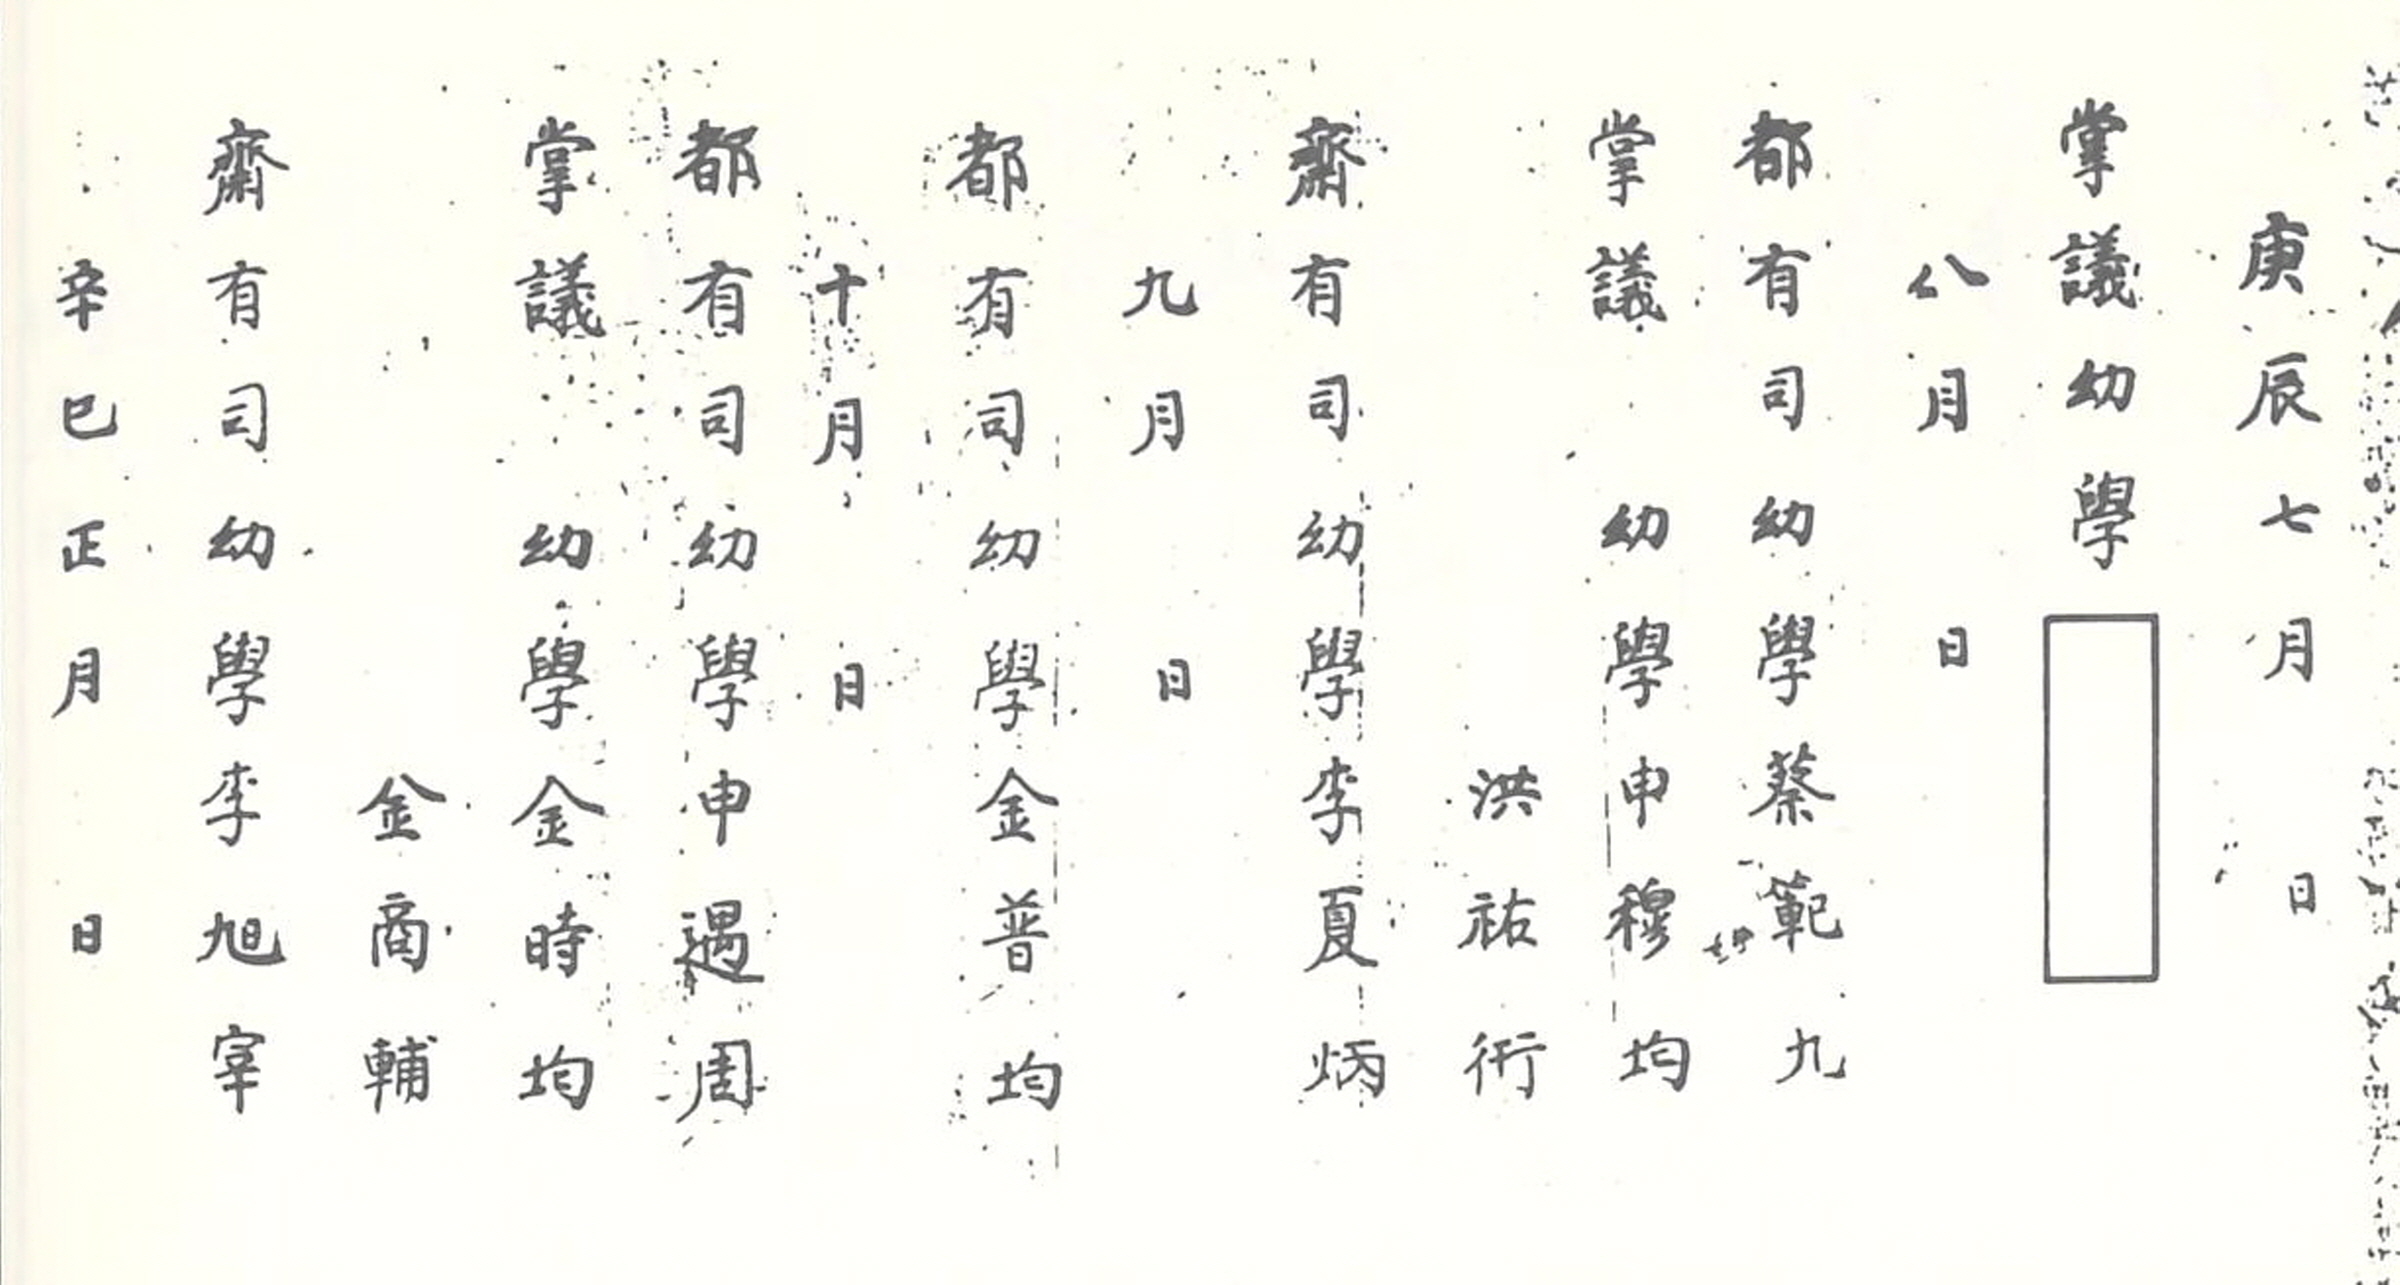 庚辰七月 日
掌議幼學
八月 日
都有司幼學蔡範九
掌議 幼學申穆均
洪祐衍
齋有司幼學李夏炳
九月 日
都有司幼學金普均
十月 日
都有司幼學申遇周
掌議 幼學金時均
金商輔
齋有司幼學李旭宰
辛巳正月 日